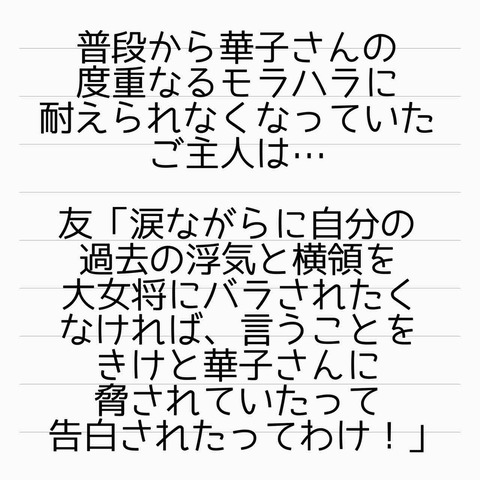 普段から華子さんの
度重なるモラハラに
耐えられなくなっていた
ご主人は…
友「涙ながらに自分の
過去の浮気と横領を
大女将にバラされたく
なければ、言うことを
きけと華子さんに
脅されていたって
告白されたってわけ！」